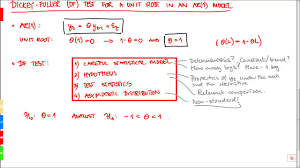 DICKEY-FULLER (DF) TEST FOR A UNIT ROOT IN AN AR(1) MODEL
• AR(1): y_t = θ y_{t-1} + ε_t
UNIT ROOT: θ(1) = 0 → 1-θ = 0 ⇔ θ = 1 (θ(L) = 1-θL)
• DF TEST:
1) CAREFUL STATISTICAL MODEL
2) HYPOTHESIS
3) TEST STATISTICS
4) ASYMPTOTIC DISTRIBUTION
Deterministics? Constant/trend?
How many lags? Here: 1 lag
Properties of y_t under the null
and the alternative
→ Relevant comparison.
Non-standard!
H_0: θ = 1 AGAINST H_A: -1 < θ < 1